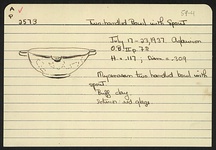 A
P
2573
Two-handled Bowl with Spout
58-11
July 17-23, 1937.
O.B. II p. 72
H = .117; Diam = .209
Mycenaean two handled bowl with
spout.
Buff clay
red glaze